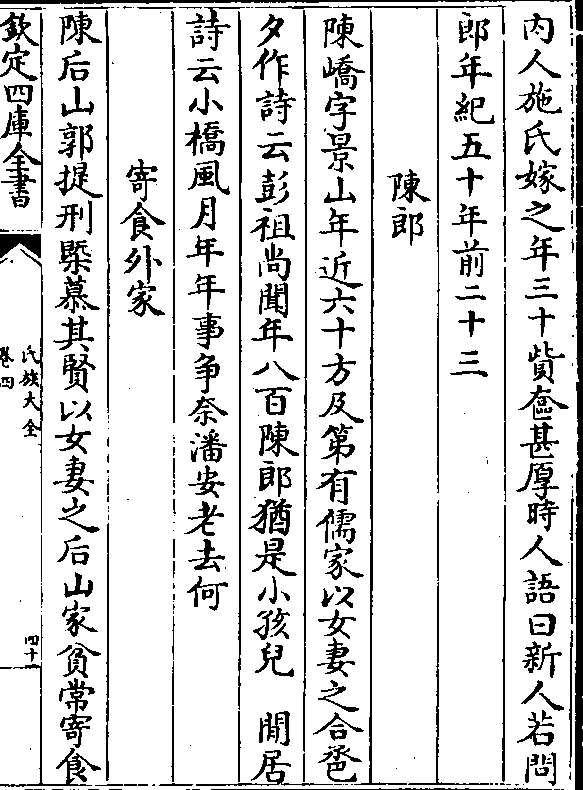 内人施氏嫁之年三十貲奩甚厚時人語曰新人若問
郎年紀五十年前二十三
陳郎
陳嶠字景山年近六十方及第有儒家以女妻之合巹
夕作詩云彭祖尚聞年八百陳郎猶是小孩兒　閒居
詩云小橋風月年年事争奈潘安老去何
寄食外家
陳后山郭提刑槩慕其賢以女妻之后山家貧常寄食
欽定四庫全書
氏族大全
卷四
四十一